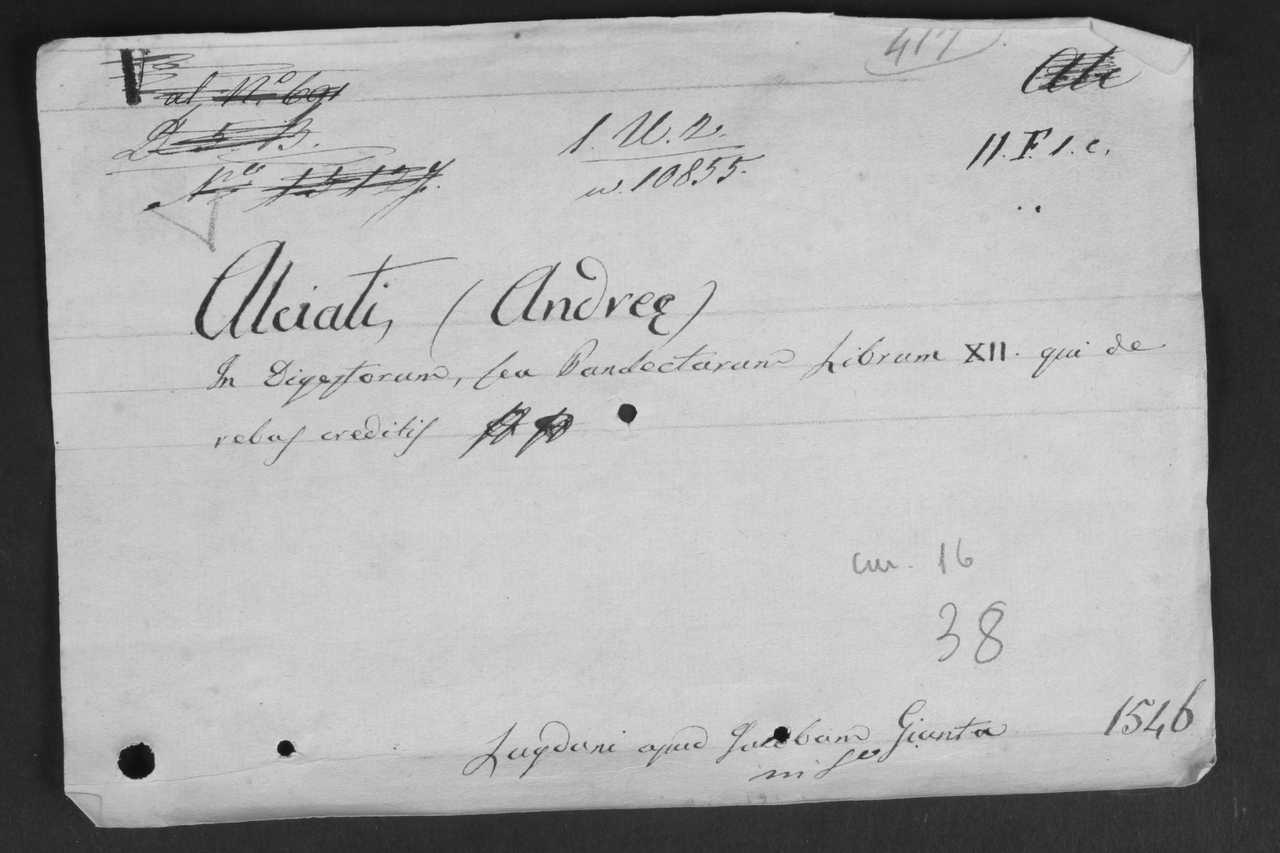 417
al, N.º 691
D 5 B.
1. U. 2.
11. F. 1. c.
Nº 15127.
w. 10855.
Alciati, (Andreę)
In Digestorum, seu Pandectarum Librum XII. qui de
rebus creditis
cur. 16
38
Lugduni apud Jacobum Giunta
in 8º
1546